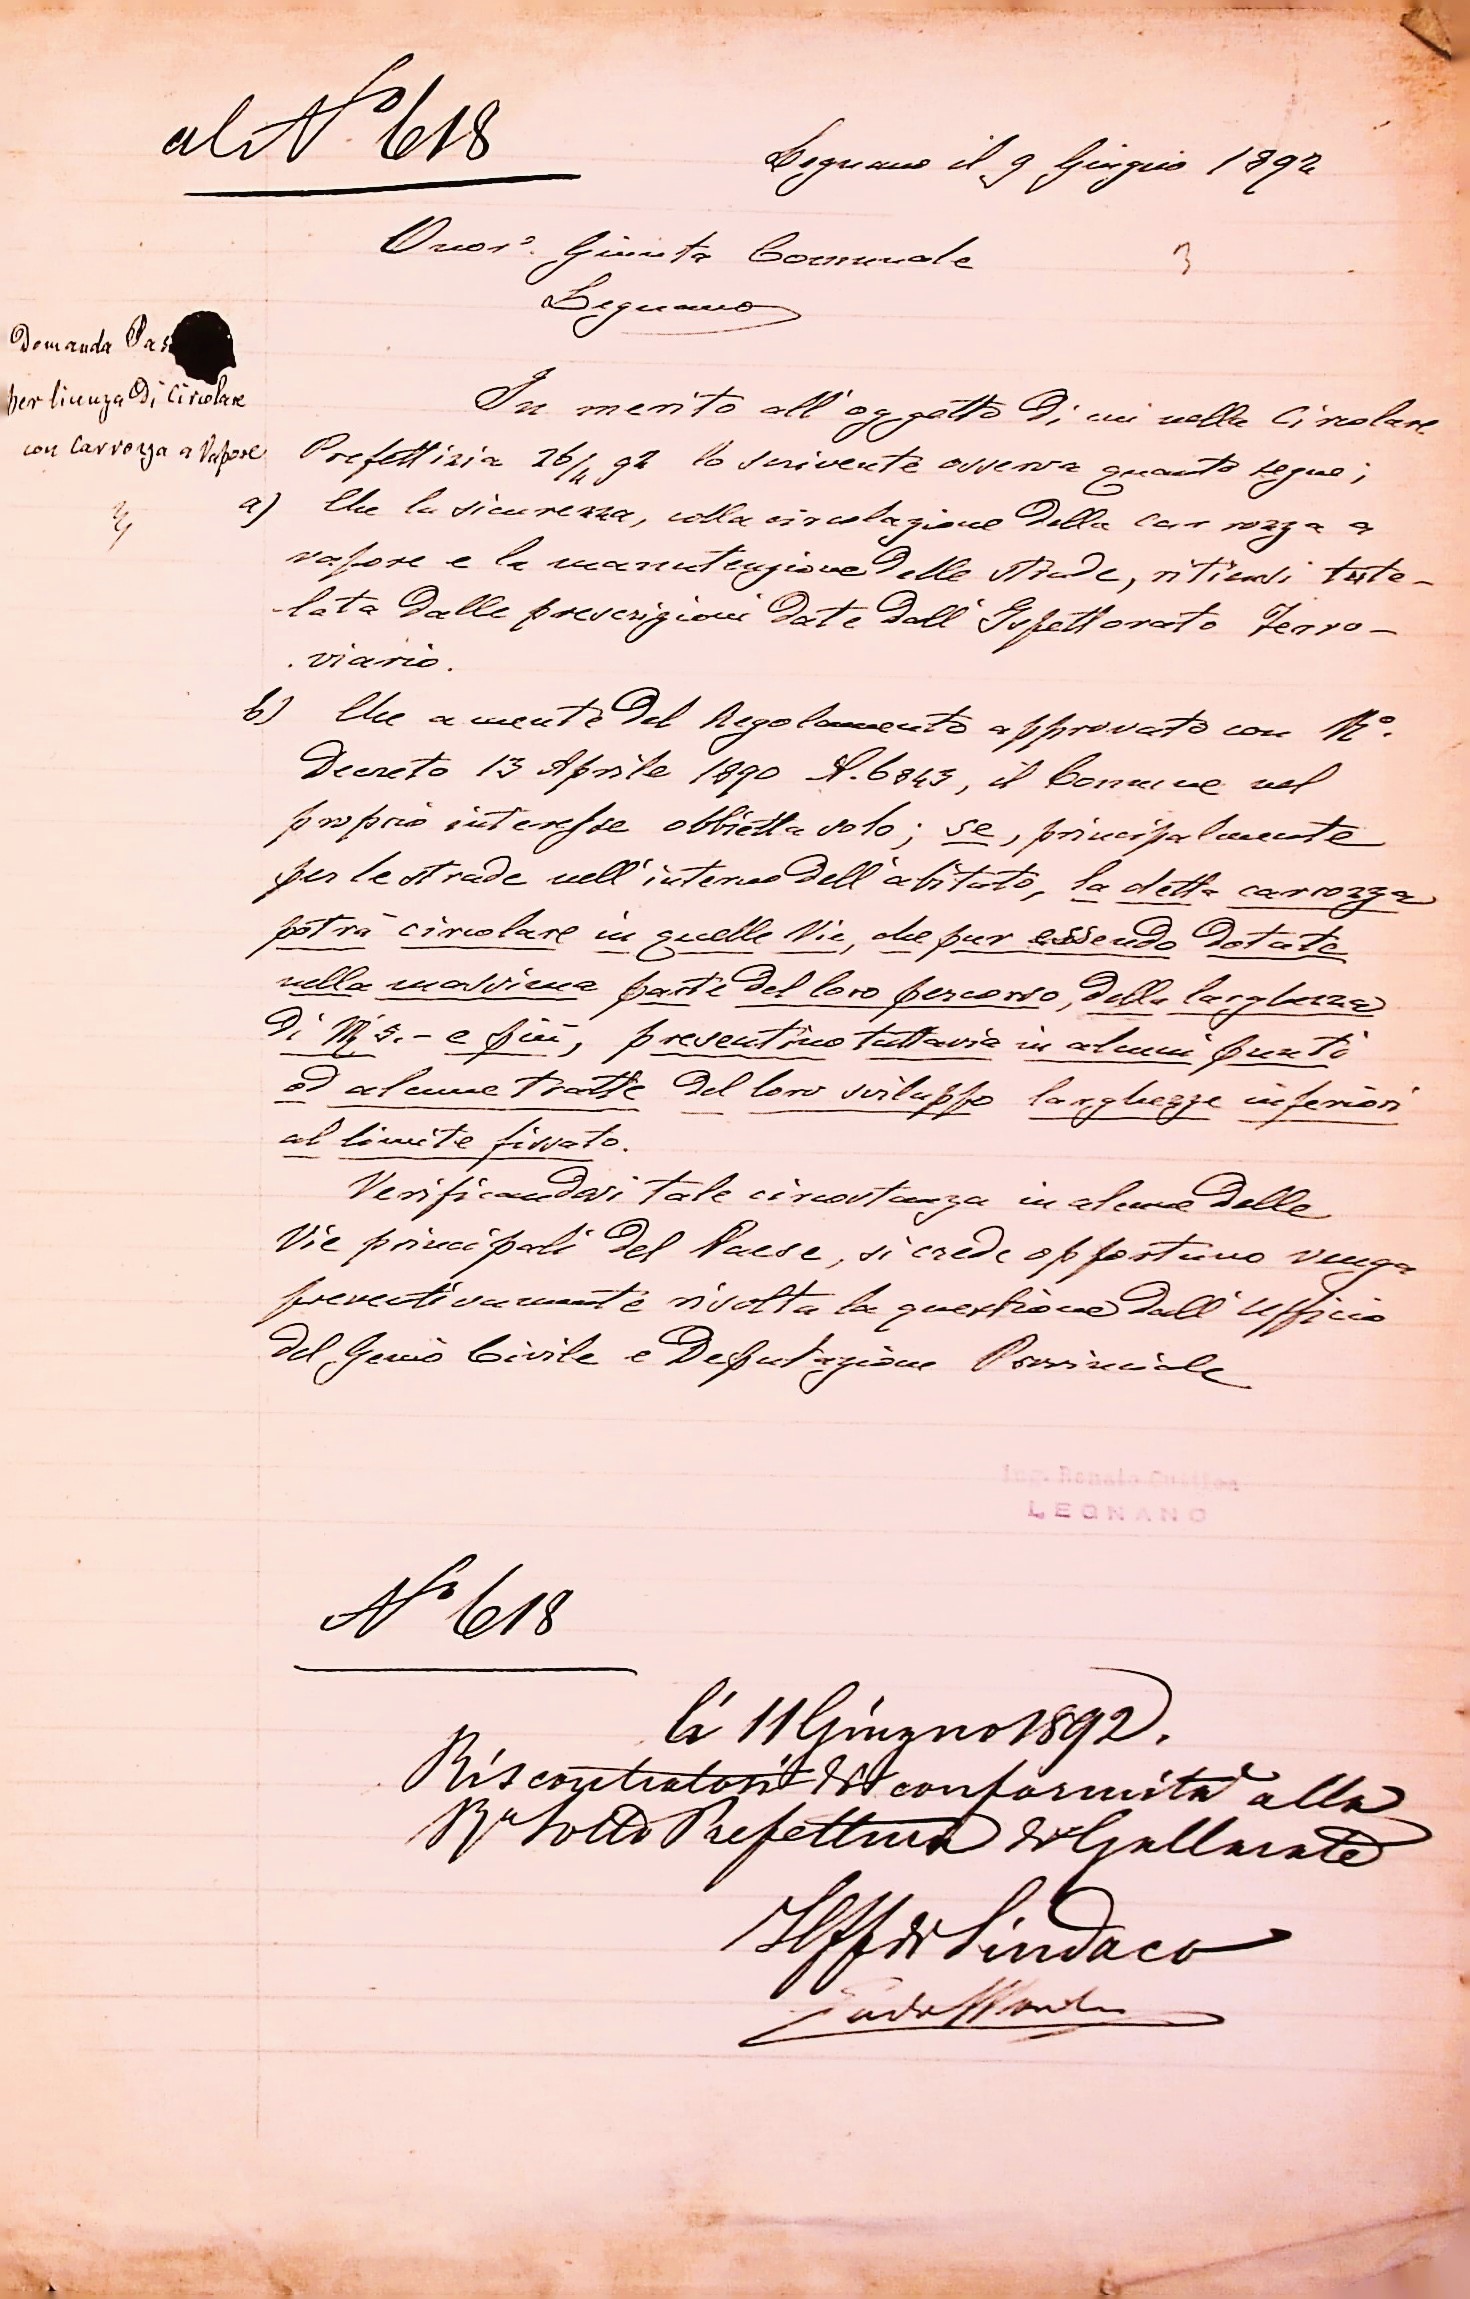 al N.º 618
Legnano il 9 Giugno 1892
Onorª. Giunta Comunale
3
Legnano
Domanda
per licenza di circolare
con carrozza a Vapore
In merito all'oggetto di cui nella Circolare
Prefettizia 26/4 92 lo scrivente osserva quanto segue;
a) Che la sicurezza, colla circolazione della carrozza a
vapore e la manutenzione delle strade, ritiensi tute-
lata dalle prescrizioni date dall'Ispettorato Ferro-
viario.
b) Che a mente del Regolamento approvato con Rº.
Decreto 13 Aprile 1890 N. 6843, il Comune nel
proprio interesse obbietta solo; se, principalmente
per le strade nell'interno dell'abitato, la detta carrozza
potrà circolare in quelle Vie, che pur essendo dotate
nella massima parte del loro percorso, della larghezza
di M. 5.- e più, presentino tuttavia in alcuni punti
od alcune tratte del loro sviluppo larghezze inferiori
al limite fissato.
Verificandosi tale circostanza in alcune delle
Vie principali del Paese, si crede opportuno venga
preventivamente risolta la questione dall'Ufficio
del Genio Civile e Deputazione Provinciale
Ing. Renato
LEGNANO
Nº 618
li 11 Giugno 1892.
di conformità alla
Rª Sotto Prefettura di Gallarate
Il ff di Sindaco